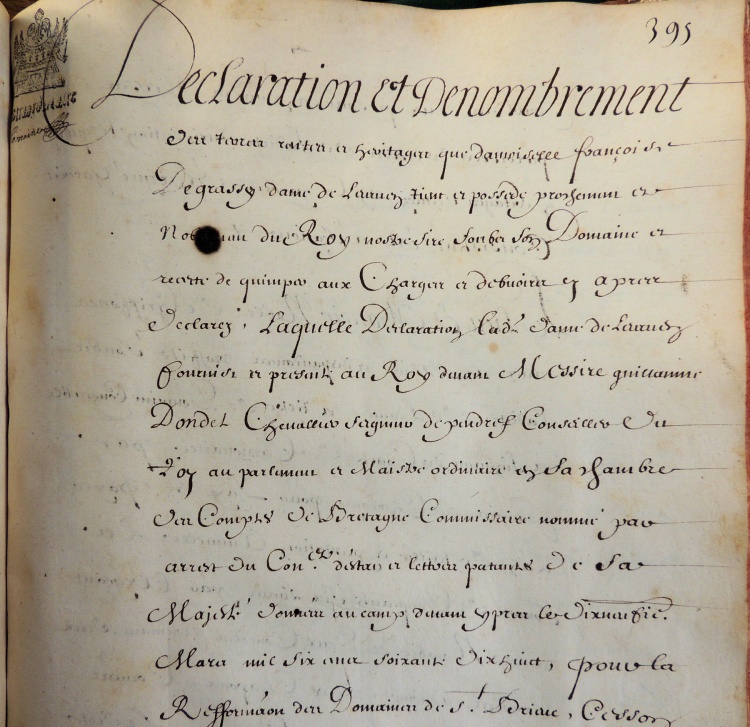 395
Declaration Et Denombrement
des terres rentes et heritages que damoiselle françoise
Degrassy dame de tient et possede prochement et
du Roy nostre sire soubz son Domaine et
recette de quimper aux Charges et debvoirs cy apres
declarez, Laquelle Declaration lad. dame de
fournist et presente au Roy devant Messire guillaume
Dondel Chevallier seigneur de pendref Conseiller du
Roy au parlement et Maistre ordinaire en sa chambre
des Comptes de Bretagne Commissaire nommé par
arrest du Con.el d'estat et lettres patantes de sa
Majesté donnees au camp devant ypres le dixneufie.
Mars mil six cens soixante dixhuict, pour la
Refformaon des Domaines de s.t Brieuc, Cesson